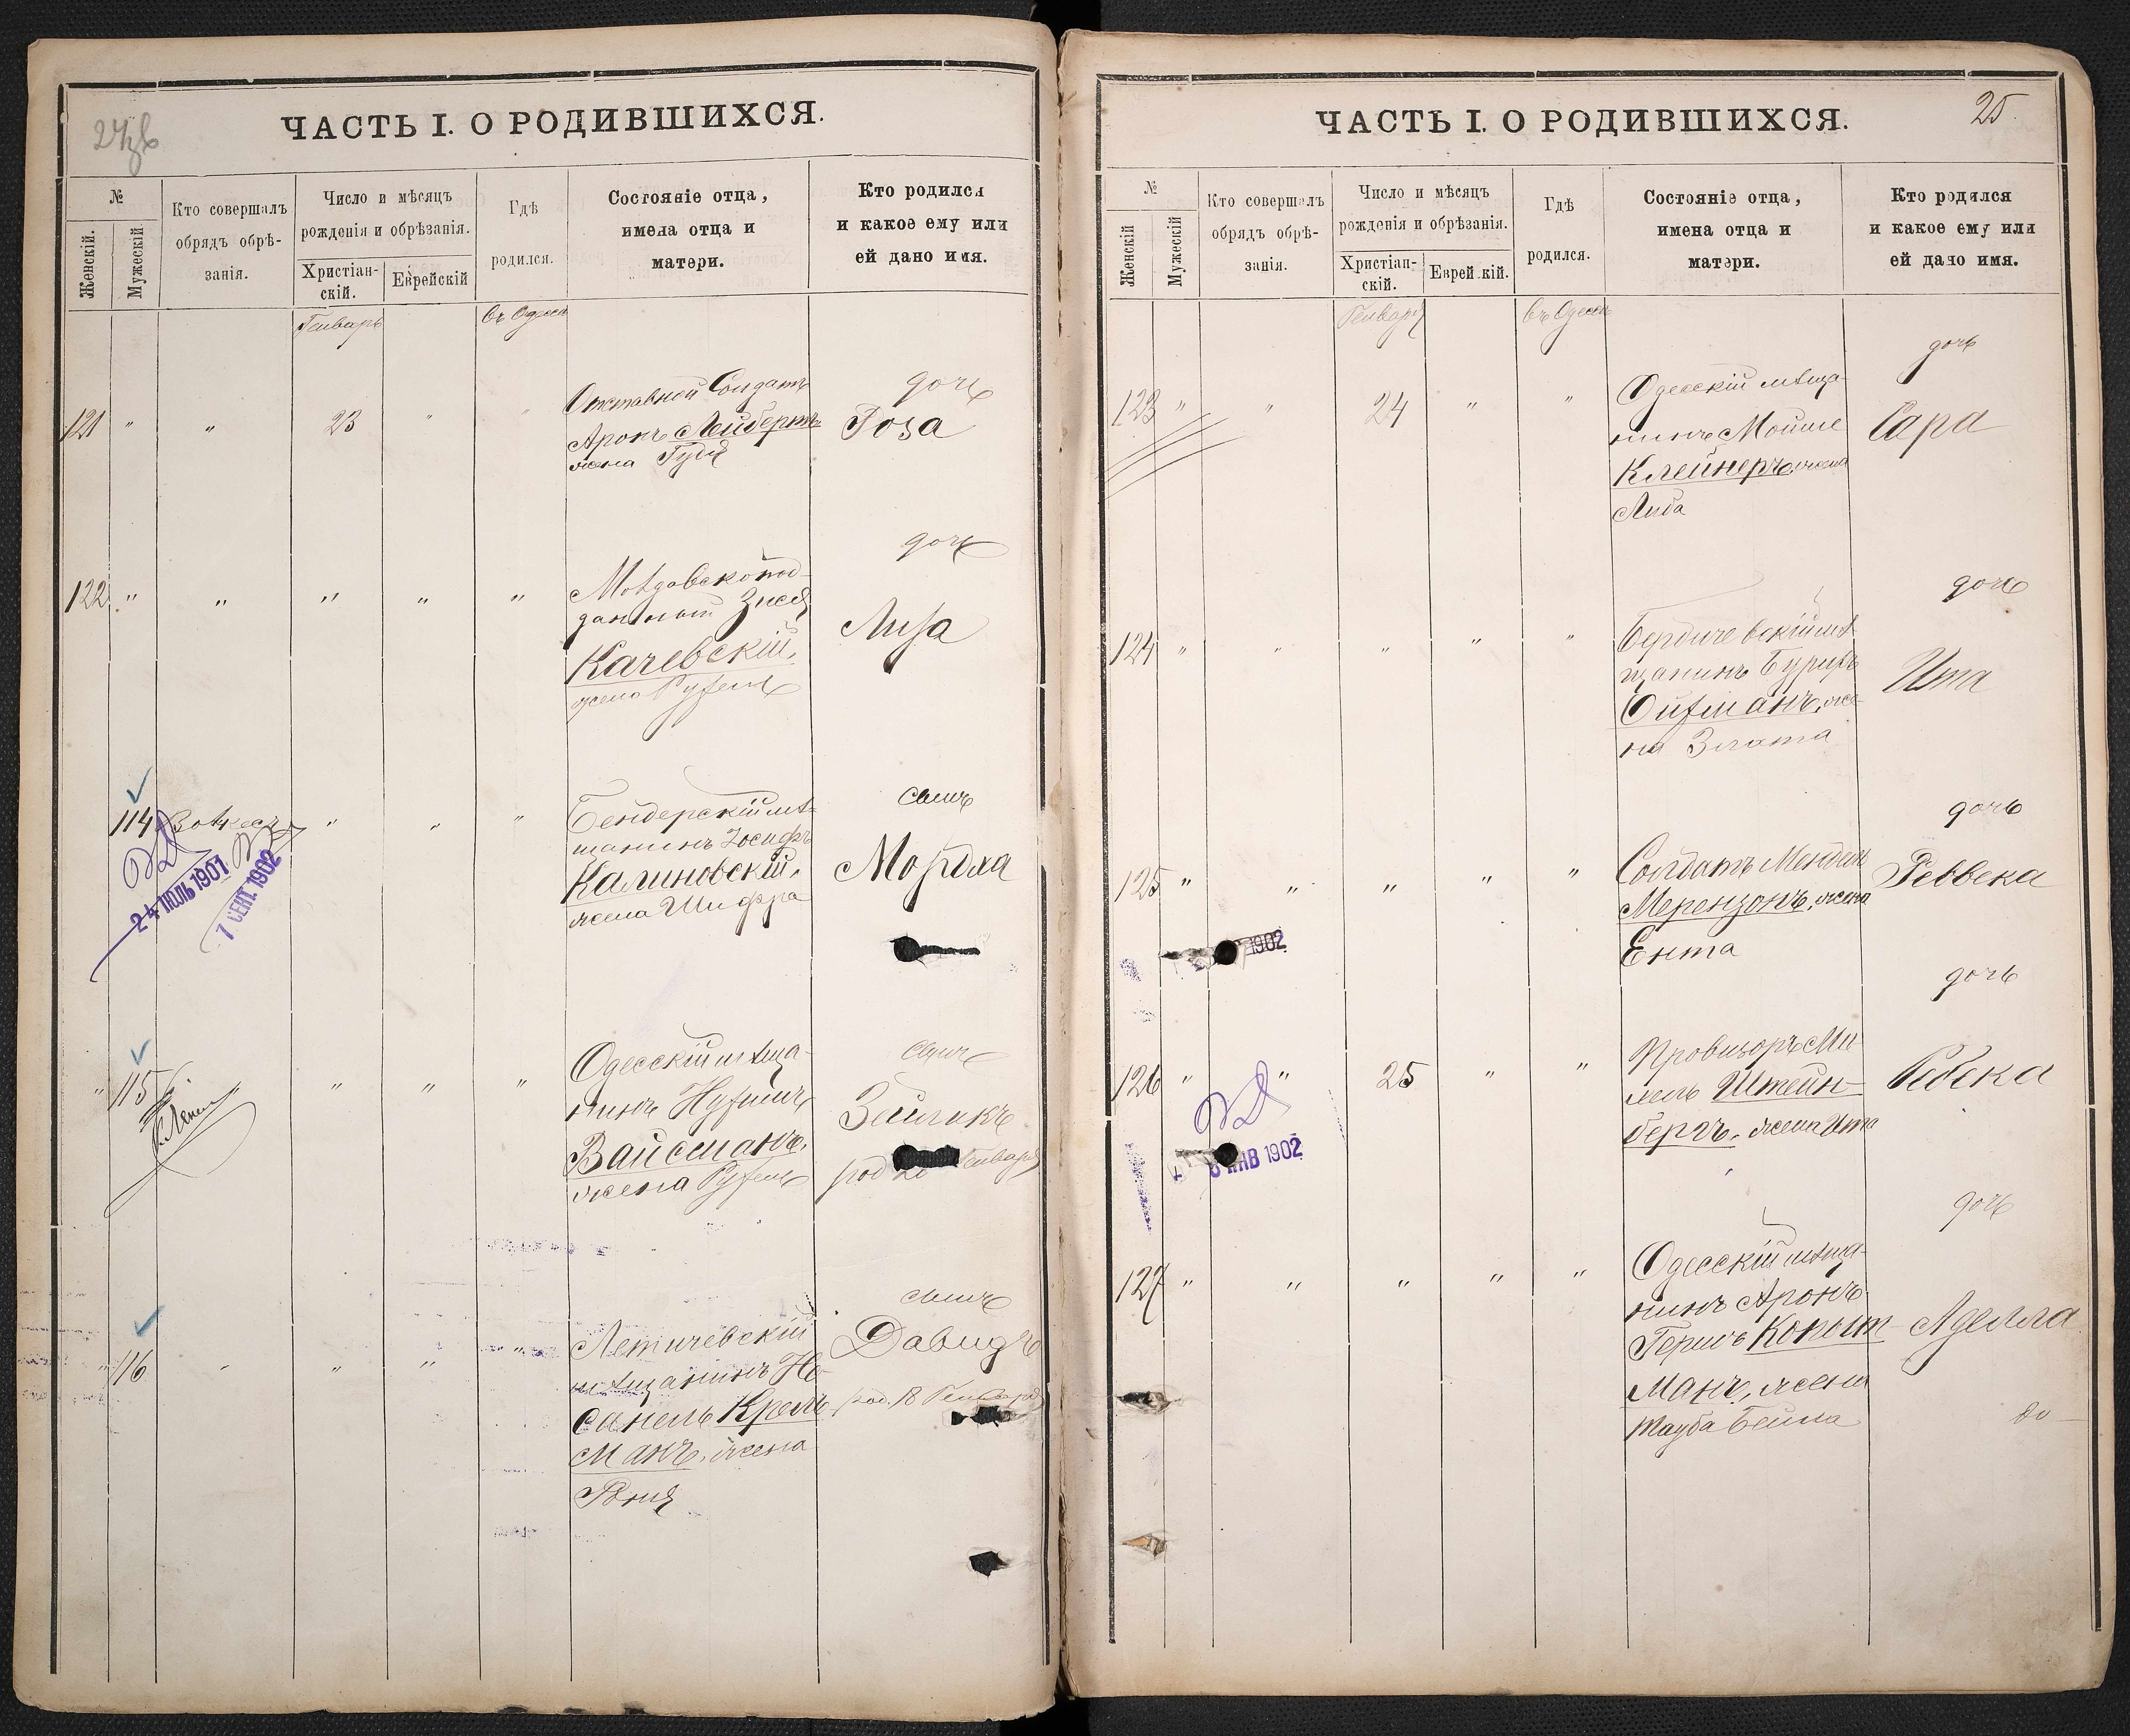 ЧАСТЬ I. О РОДИВШИХСЯ.
№
Женскій.
Мужескій
Кто совершалъ
обрядъ обрѣ-
занія.
Число и мѣсяцъ
рожденія и обрѣзанія.
Христіан-
скій.
Еврейскій
Гдѣ
родился.
Состояніе отца,
имена отца и
матери.
Кто родился
и какое ему или
ей дано имя.
Генварь
въ Одессѣ
121 " " 23 " "
Отставной Солдатъ
Аронъ Лейбертъ
жена Гудя
дочь
Роза
122 " " " " "
данный Зися
Качевскій,
жена Рухель
дочь
Лиза
114 " " "
Бендерскій мѣ-
щанинъ Іосифъ
Калиновскій,
жена Шифра
сынъ
Мордха
24 ИЮЛЬ 1901
7 СЕНТ. 1902
" 115 " " "
Одесскій мѣща-
нинъ Нухимъ
Вайсманъ,
жена Рухель
сынъ
Зейликъ
род 20 Генваря
" 116 " " " "
Летичевскій
мѣщанинъ Но-
санель Крель
манъ, жена
сынъ
Давидъ
род. 18 Генваря
ЧАСТЬ I. О РОДИВШИХСЯ.
25
№
Женскій
Мужескій
Кто совершалъ
обрядъ обрѣ-
занія.
Число и мѣсяцъ
рожденія и обрѣзанія.
Христіан-
скій.
Еврей кій.
Гдѣ
родился.
Состояніе отца,
имена отца и
матери.
Кто родился
и какое ему или
ей дано имя.
Генварь
въ Одессѣ
123 " " 24 " "
Одесскій мѣща-
нинъ Мойше
Клейнеръ, жена
Либа
дочь
Сара
124 " " " " "
Бердичевскій мѣ
щанинъ Бурихъ
Ойхманъ, же-
на Злата
дочь
Ита
125 " " " " "
Солдатъ Мендель
Мерензонъ, жена
Ента
дочь
Реввека
1902
126 " " 25 " "
Провизоръ Ми
хель Штейн-
бергъ, жена Ита
дочь
Ребека
ЯНВ 1902
127 " " " " "
Одесскій мѣща-
нинъ Аронъ
Гершъ Копыт
манъ, жена
Тауба Бейла
дочь
Аделла